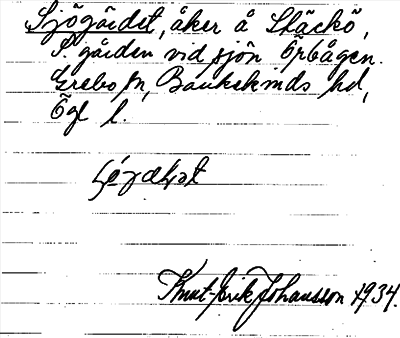 Sjögärdet, åker å Skäckö,
S. gården vid sjön Örbågen.
Grebo sn, Bankekinds hd,
Ögl l.
Knut-Erik Johansson 1934.